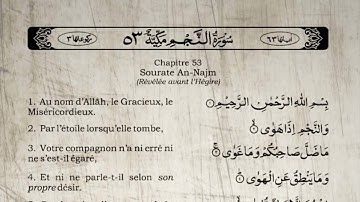 اٰیاتہا ٦٣ سُوْرَةُ النَّجْمِ مَكِّيَّةٌ ٥٣ رکوعاتہا ٣
Chapitre 53
Sourate An-Najm
(Révélée avant l'Hégire)
1. Au nom d'Allâh, le Gracieux, le Miséricordieux.
بِسْمِ اللّٰهِ الرَّحْمٰنِ الرَّحِيْمِ ۝
2. Par l'étoile lorsqu'elle tombe,
وَالنَّجْمِ اِذَا هَوٰى ۝
3. Votre compagnon n'a ni erré ni ne s'est-il égaré,
مَا ضَلَّ صَاحِبُكُمْ وَمَا غَوٰى ۝
4. Et ni ne parle-t-il selon son propre désir.
وَمَا يَنْطِقُ عَنِ الْهَوٰى ۝